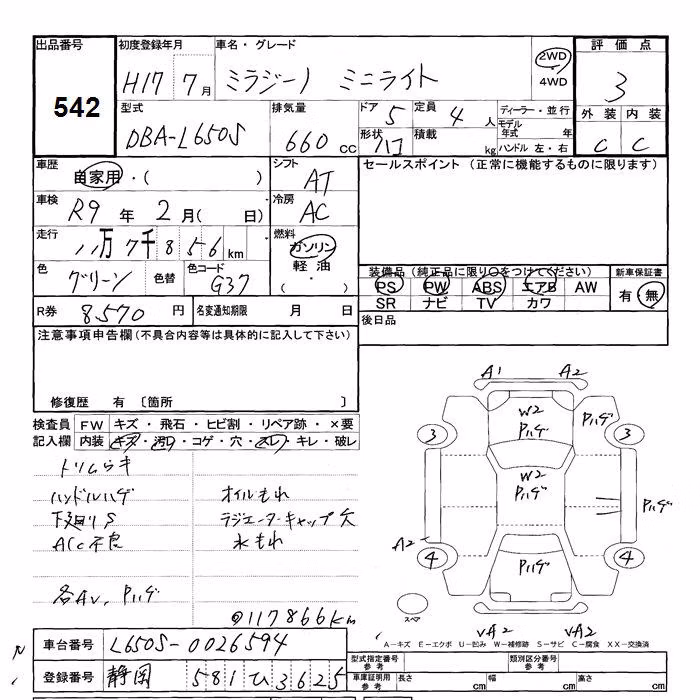 出品番号 初度登録年月 車名・グレード 評価点
542 H17 7月 ミラジーノ ミニライト 2WD 4WD 3
型式 排気量 ドア 5 定員 4人 ディーラー・並行 外装 内装
DBA-L650S 660cc 形状 積載 kg モデル年式 年 ハンドル 左・右 C C
車歴 自家用・( ) シフト AT セールスポイント (正常に機能するものに限ります)
車検 R9年 2月( 日) 冷房 AC
走行 11万7千856km 燃料 ガソリン 軽油 (・)
色 グリーン 色替 色コード G37 装備品 (純正品に限り○をつけてください) 新車保証書
PS PW ABS エアB AW 有・無
SR ナビ TV カワ
R券 8570円 名変通知期限 月 日 後日品
注意事項申告欄 (不具合内容等は具体的に記入して下さい)
修復歴 有 〔箇所 〕
検査員 FW キズ・飛石・ヒビ割・リペア跡・×要
記入欄 内装 キズ・汚れ・コゲ・穴・スレ・キレ・破レ
トリムうき
ハンドルハゲ オイルもれ
下廻りS ラジエーターキャップ欠
ACC不良 水もれ
各AU、Pハゲ
117866km
A1 A2
W2 Pハゲ Pハゲ
3 3
W2 Pハゲ
Pハゲ
A2
4 Pハゲ 4
スペア
A2 A2
A-キズ E-エクボ U-凹み W-補修跡 S-サビ C-腐食 XX-交換済
車台番号 L650S-0026594 型式指定番号 参考 類別区分番号 参考
登録番号 静岡 581 ひ 3625 車庫証明用 参考 長さ cm 幅 cm 高さ cm